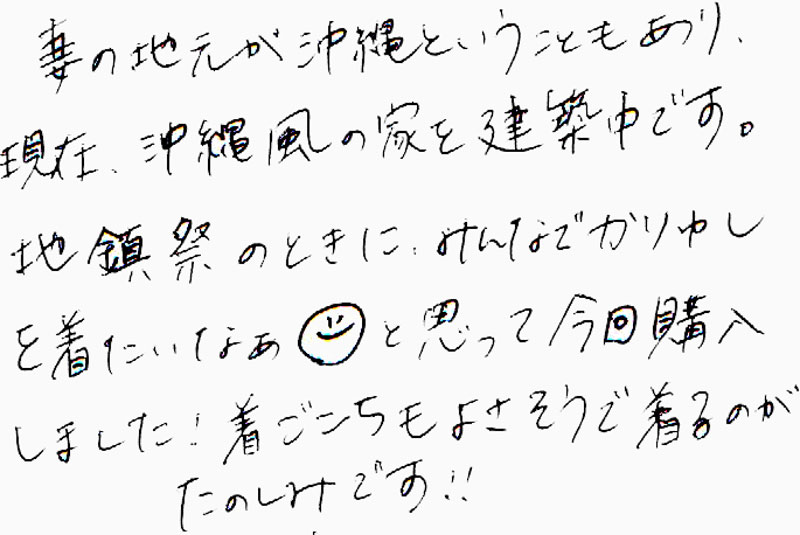 妻の地元が沖縄ということもあり、
現在、沖縄風の家を建築中です。
地鎮祭のときに、みんなでかりゆし
を着たいなぁと思って今回購入
しました!着ごこちもよさそうで着るのが
たのしみです!!